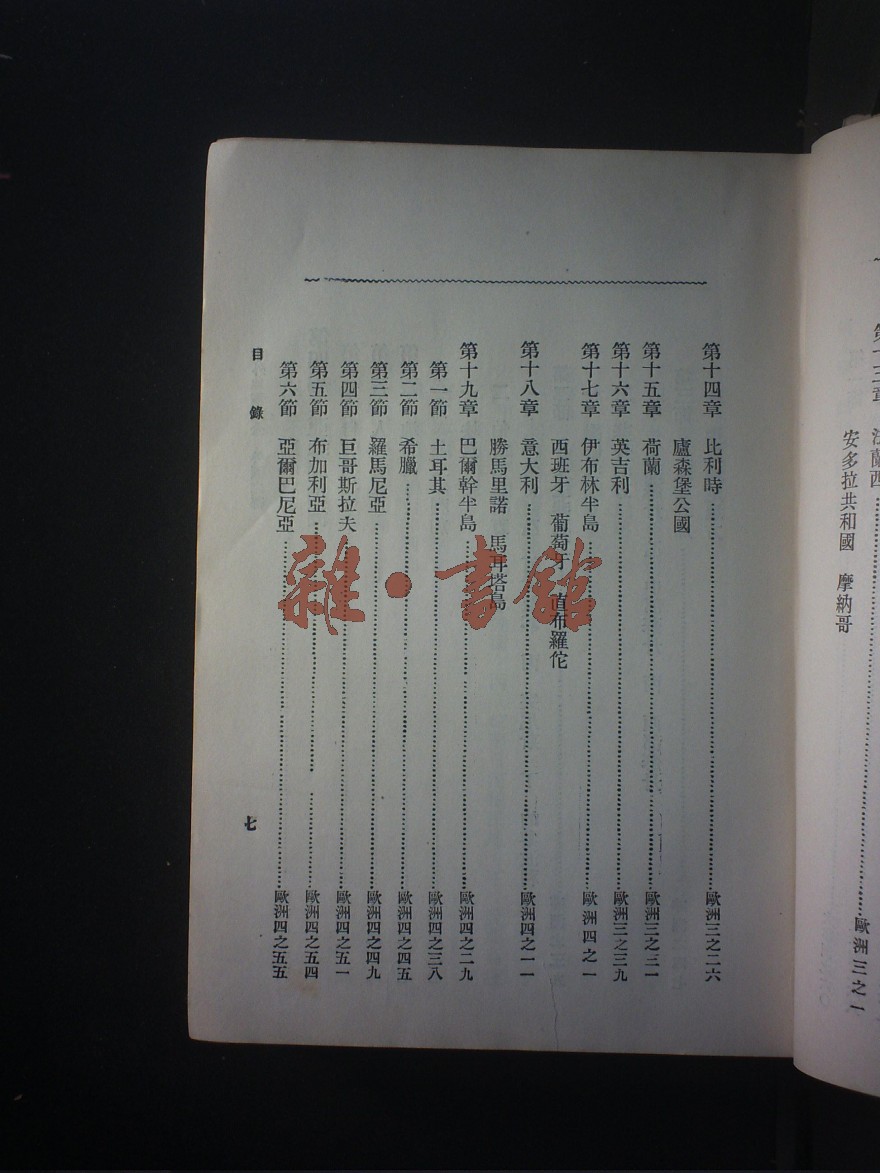 第十三章 法蘭西 歐洲三之一
安多拉共和國 摩納哥
第十四章 比利時 歐洲三之二六
廬森堡公國
第十五章 荷蘭 歐洲三之三一
第十六章 英吉利 歐洲三之三九
第十七章 伊布林半島 歐洲四之一
西班牙 葡萄牙 直布羅佗
第十八章 意大利 歐洲四之一一
勝馬里諾 馬耳塔島
第十九章 巴爾幹半島 歐洲四之二九
第一節 土耳其 歐洲四之三八
第二節 希臘 歐洲四之四五
第三節 羅馬尼亞 歐洲四之四九
第四節 巨哥斯拉夫 歐洲四之五一
第五節 布加利亞 歐洲四之五四
第六節 亞爾巴尼亞 歐洲四之五五
目錄
七
雜·書館